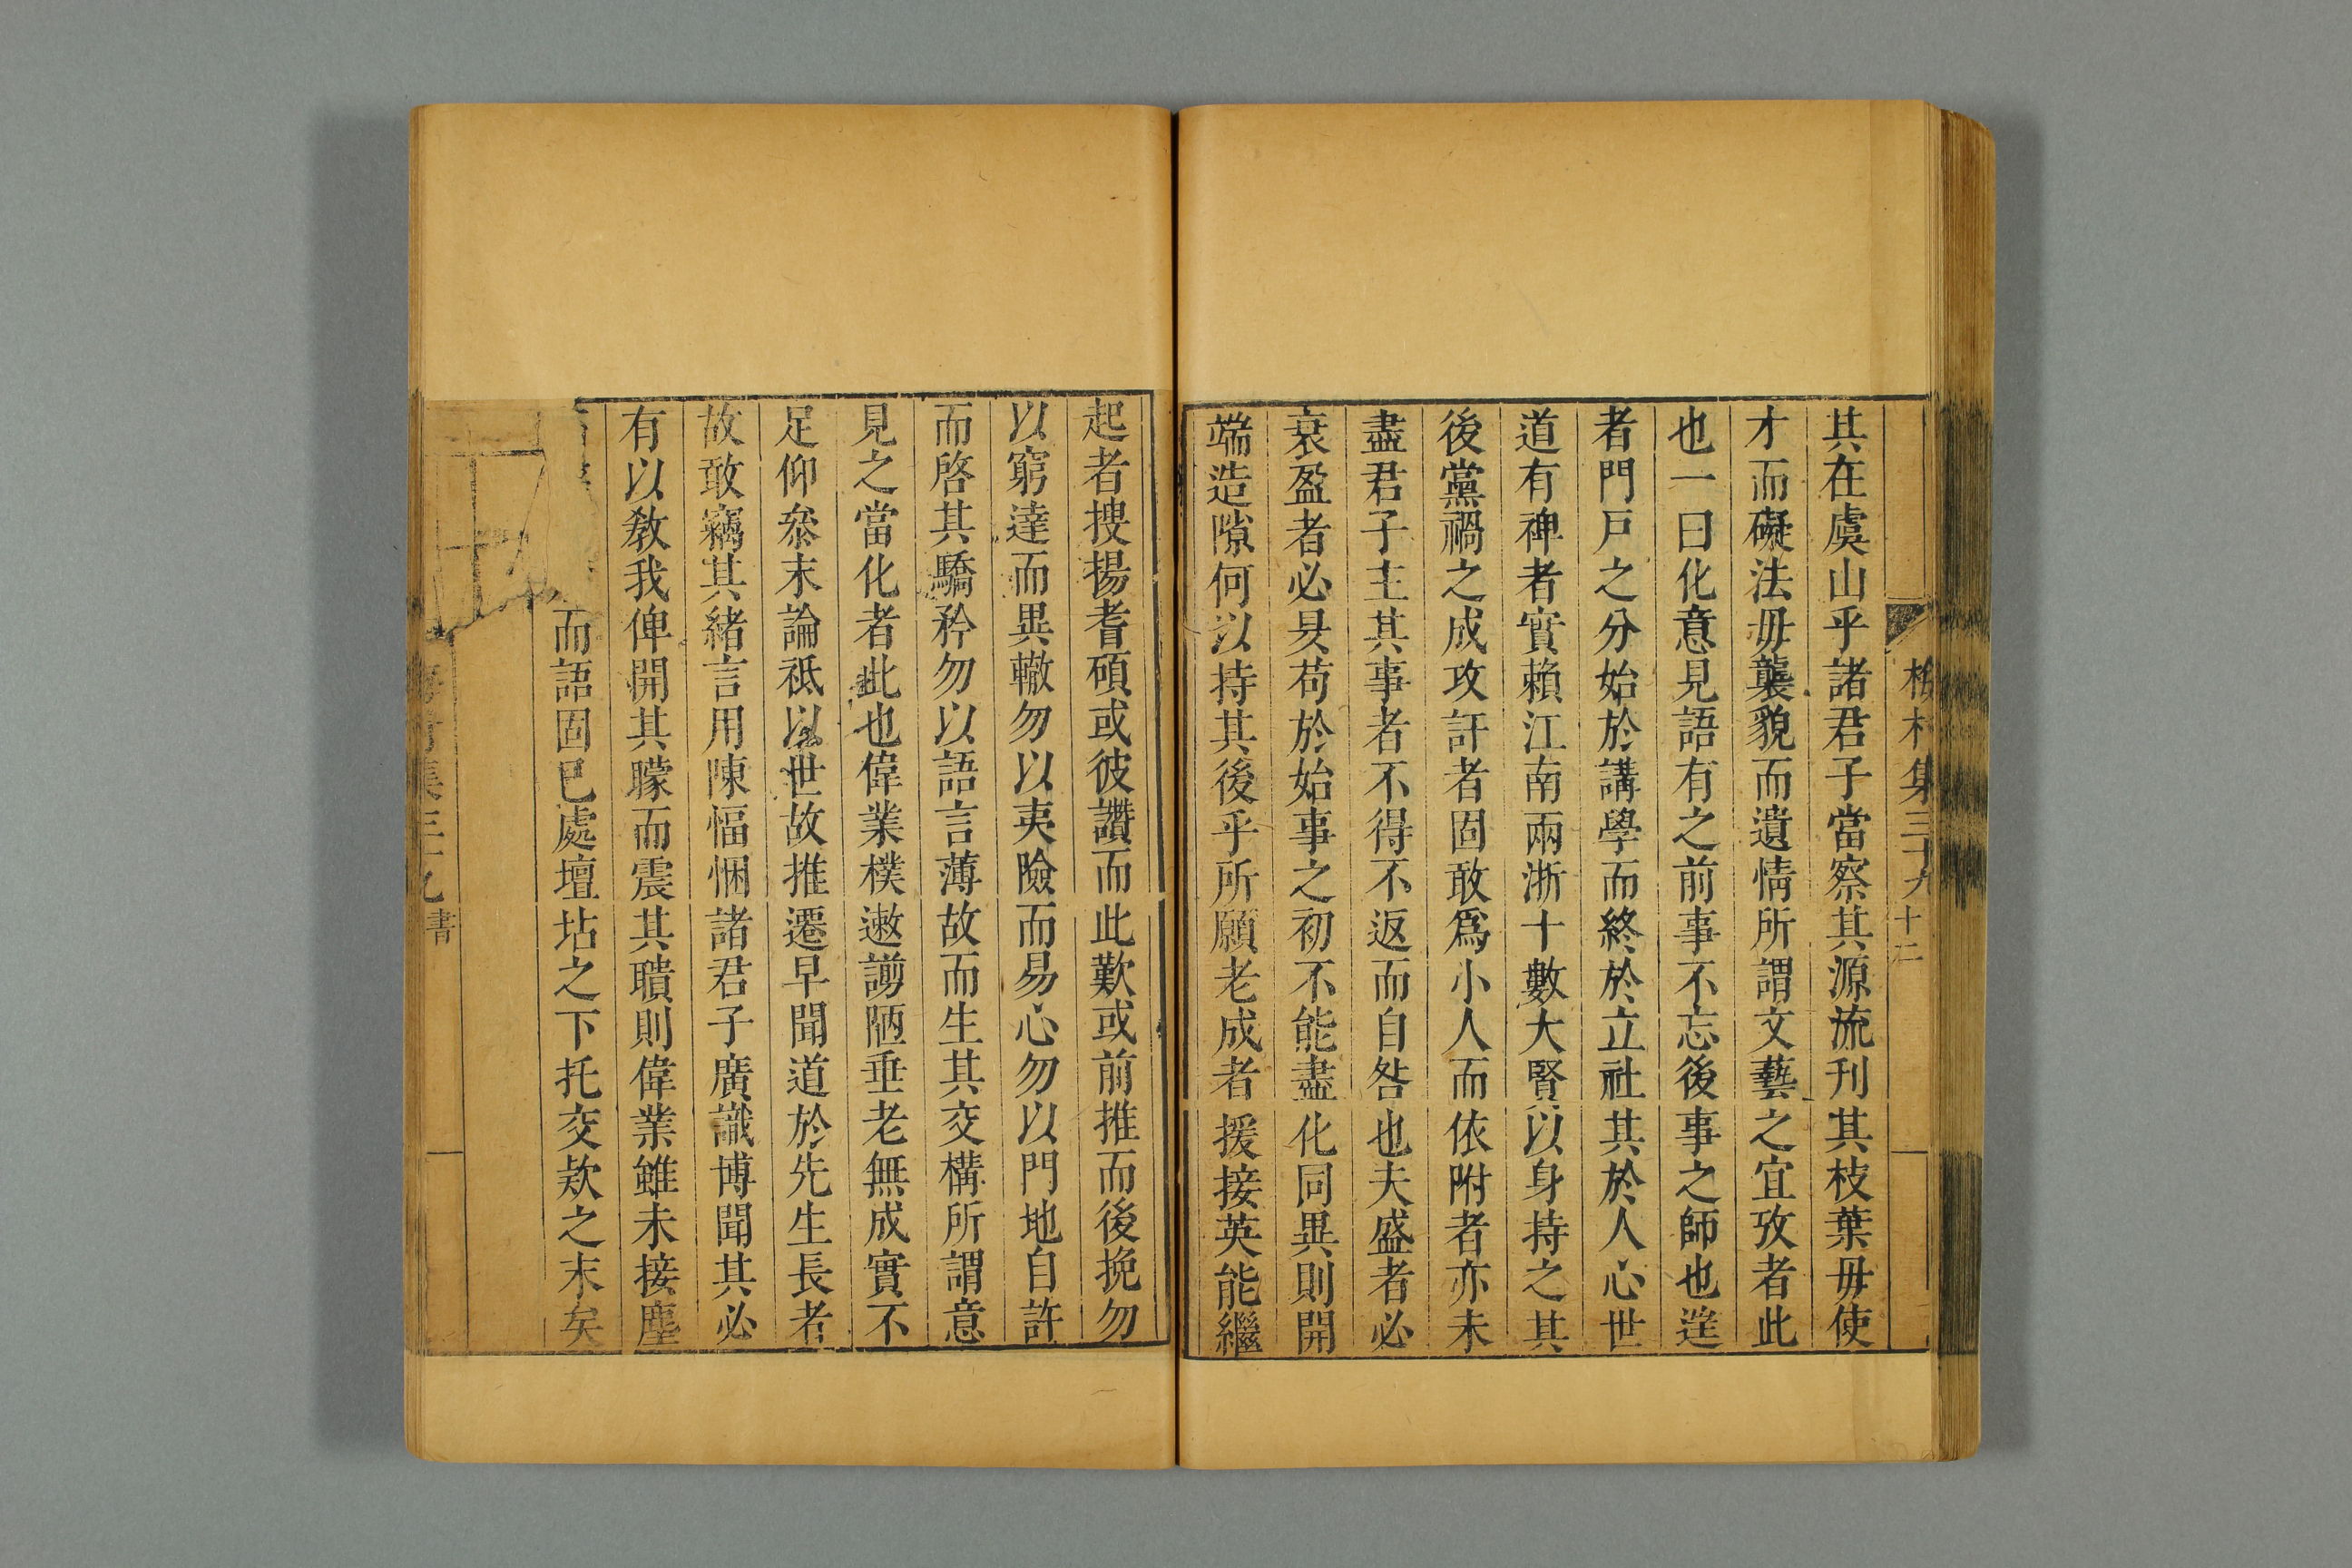 集三十九 十二
其在虞山乎諸君子當察其源流刊其枝葉毋使
才而礙法毋襲貌而遺情所謂文藝之宜攷者此
也一曰化意見語有之前事不忘後事之師也逆
者門戸之分始於講學而終於立社其於人心世
道有裨者實賴江南兩浙十數大賢以身持之其
後黨禍之成攻訐者固敢爲小人而依附者亦未
盡君子主其事者不得不返而自咎也夫盛者必
衰盈者必昃苟於始事之初不能盡化同異則開
端造隙何以持其後乎所願老成者援接英能繼
起者搜揚耆碩或彼讚而此歎或前推而後挽勿
以窮達而異轍勿以夷險而易心勿以門地自許
而啓其驕矜勿以語言薄故而生其交構所謂意
見之當化者此也偉業樸遬謭陋垂老無成實不
足仰叅末論祗以世故推遷早聞道於先生長者
故敢竊其緒言用陳愊悃諸君子廣識博聞其必
有以敎我俾開其矇而震其聵則偉業雖未接塵
而語固已處壇坫之下托交欵之末矣
集三十九 書